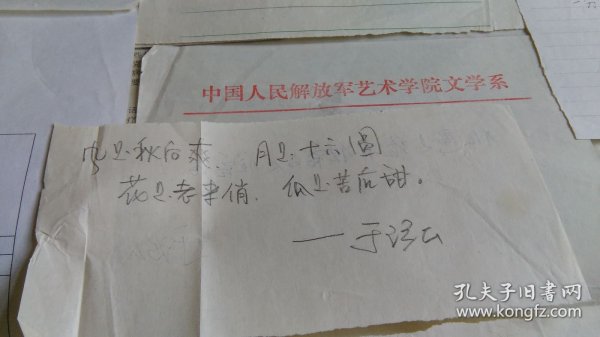 中国人民解放军艺术学院文学系
风是秋后爽 月是十六圆
花是老来俏 瓜是苦后甜。
——于
孔夫子旧书网
www.kongfz.com